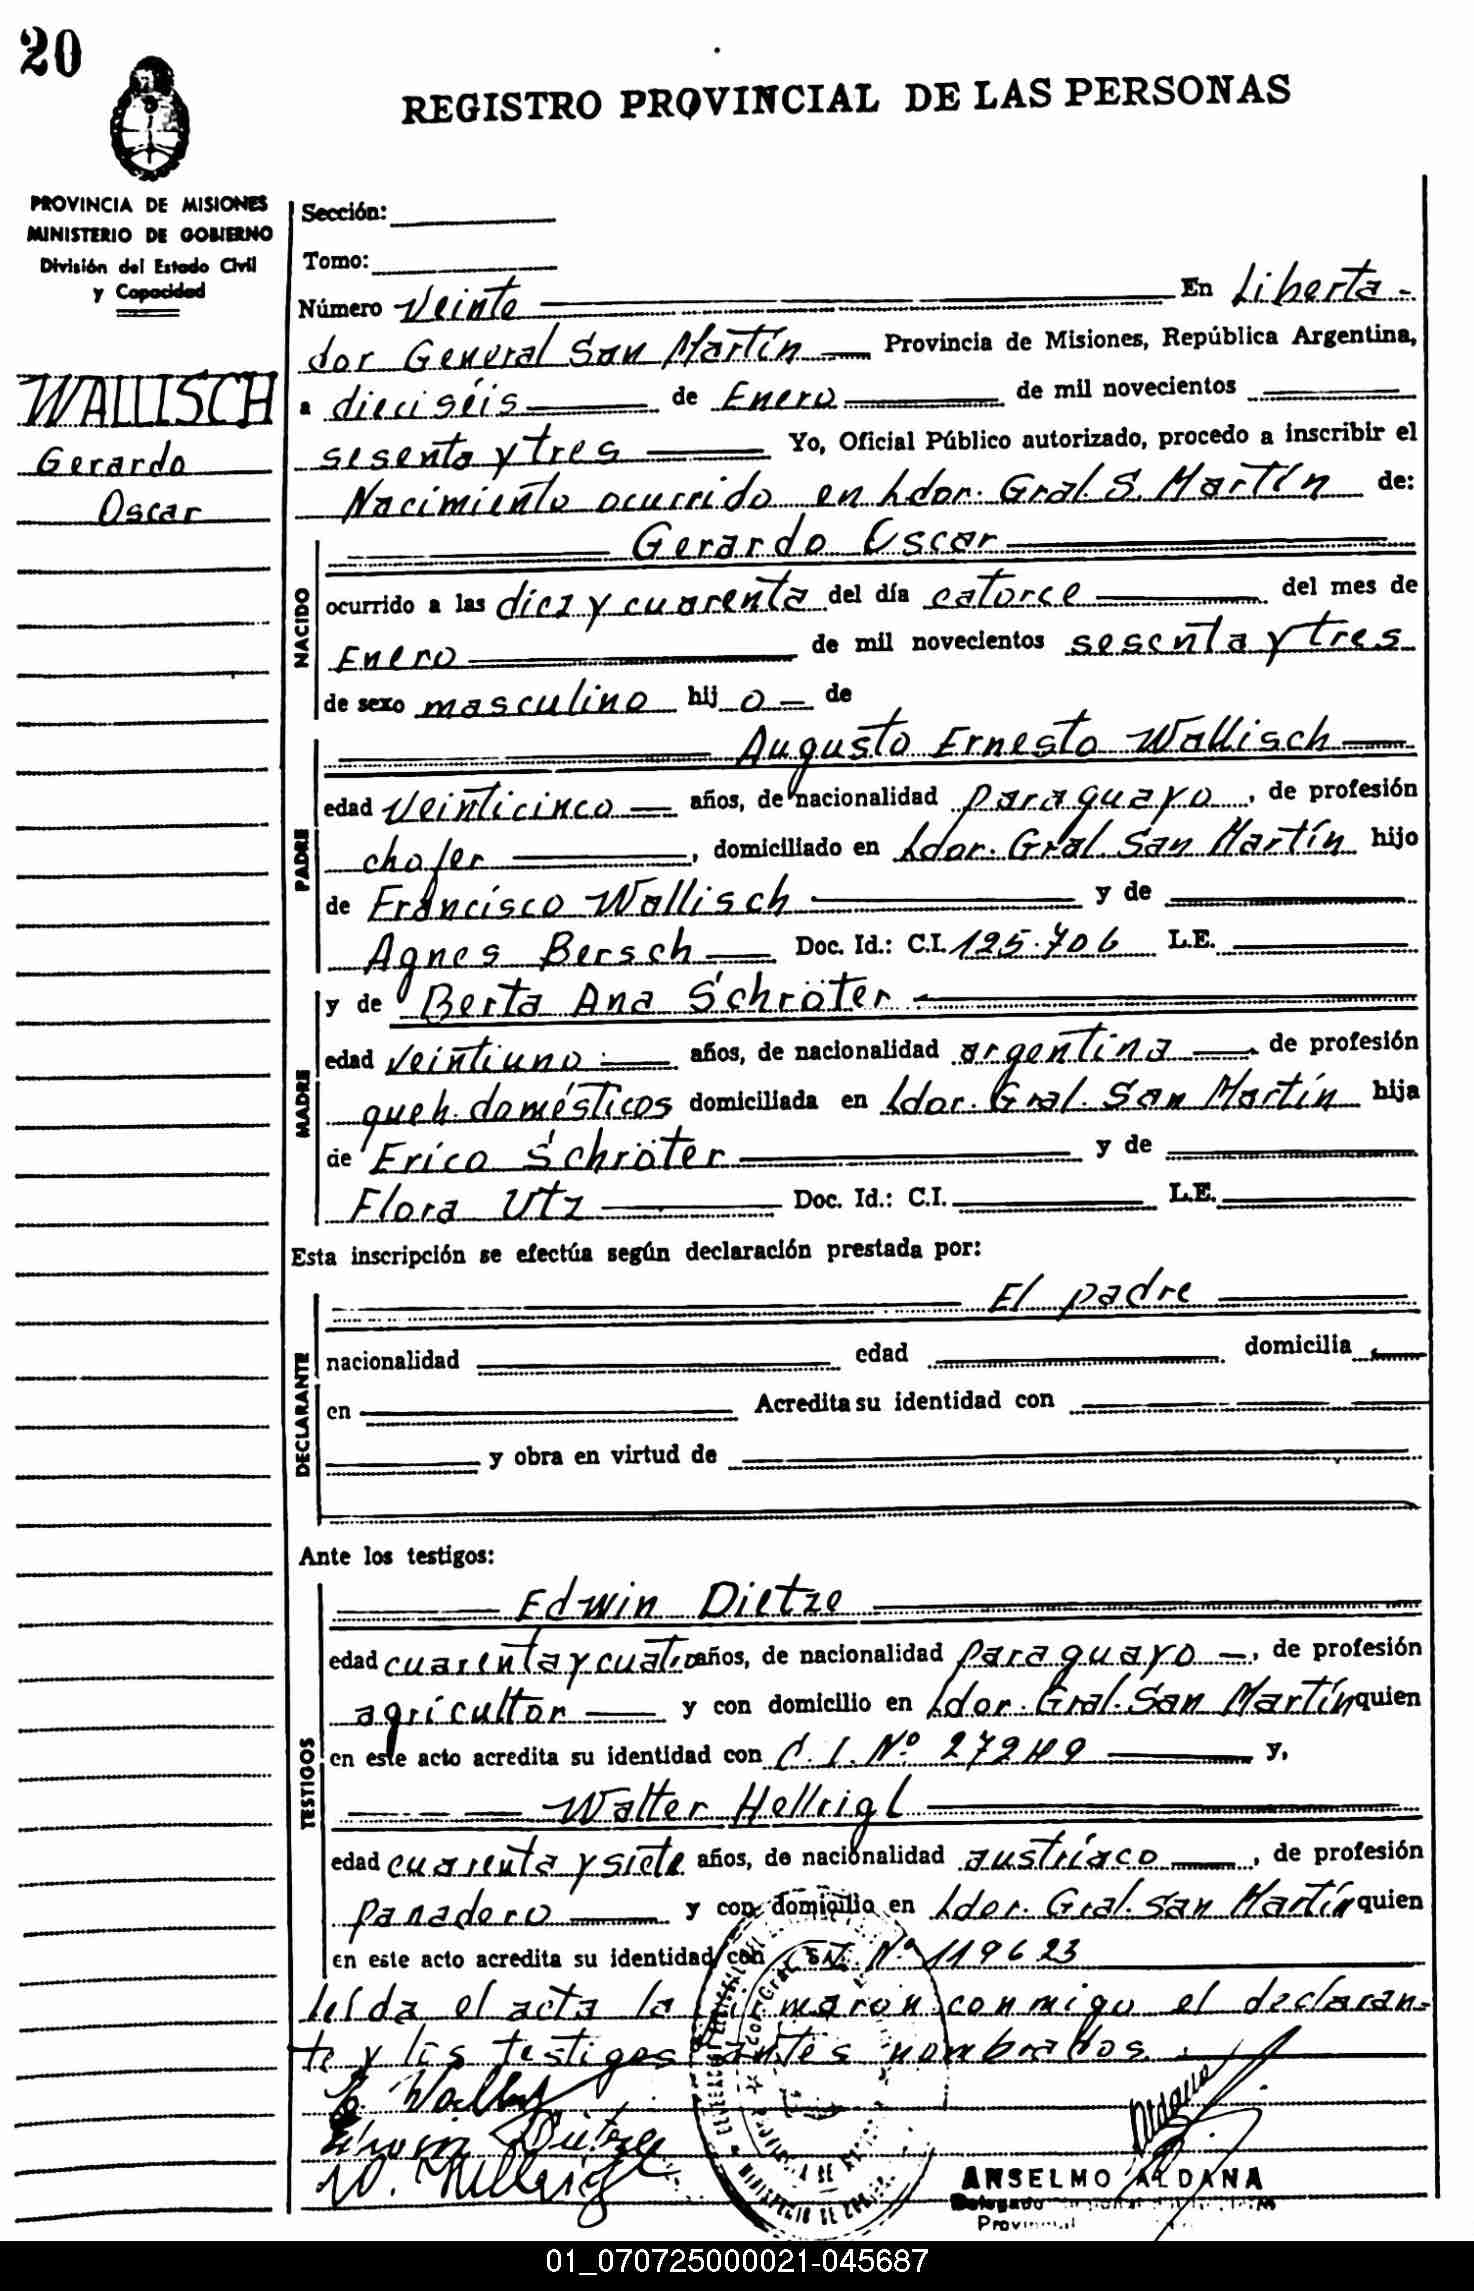 20
REGISTRO PROVINCIAL DE LAS PERSONAS
PROVINCIA DE MISIONES
MINISTERIO DE GOBIERNO
División del Estado Civil
y Capacidad
WALLISCH
Gerardo
Oscar
Sección:
Tomo:
Número Veinte En Liberta-
dor General San Martín Provincia de Misiones, República Argentina,
a dieciséis de Enero de mil novecientos
sesenta y tres Yo, Oficial Público autorizado, procedo a inscribir el
Nacimiento ocurrido en Ldor. Gral. S. Martín de:
NACIDO
Gerardo Oscar
ocurrido a las diez y cuarenta del día catorce del mes de
Enero de mil novecientos sesenta y tres
de sexo masculino hij o de
PADRE
Augusto Ernesto Wallisch
edad Veinticinco años, de nacionalidad paraguayo, de profesión
chofer, domiciliado en Ldor. Gral. San Martín hijo
de Francisco Wallisch y de
Agnes Bersch Doc. Id.: C.I. 125.706 L.E.
MADRE
y de Berta Ana Schröter
edad veintiuno años, de nacionalidad argentina de profesión
queh. domésticos domiciliada en Ldor. Gral. San Martín hija
de Erico Schröter y de
Flora Utz Doc. Id.: C.I. L.E.
Esta inscripción se efectúa según declaración prestada por:
DECLARANTE
El padre
nacionalidad edad domicilia
en Acredita su identidad con
y obra en virtud de
Ante los testigos:
TESTIGOS
Edwin Dietze
edad cuarenta y cuatro años, de nacionalidad paraguayo, de profesión
agricultor y con domicilio en Ldor. Gral. San Martín quien
en este acto acredita su identidad con C.I. Nº y,
Walter Hellrigl
edad cuarenta y siete años, de nacionalidad austríaco, de profesión
panadero y con domicilio en Ldor. Gral. San Martín quien
en este acto acredita su identidad con Nº 119623
leída el acta la firmaron conmigo el declaran-
te y los testigos antes nombrados.
Wallisch
Edwin Dietze
W. Hellrigl
ANSELMO ALDANA
Delegado
Provincial
01_070725000021-045687